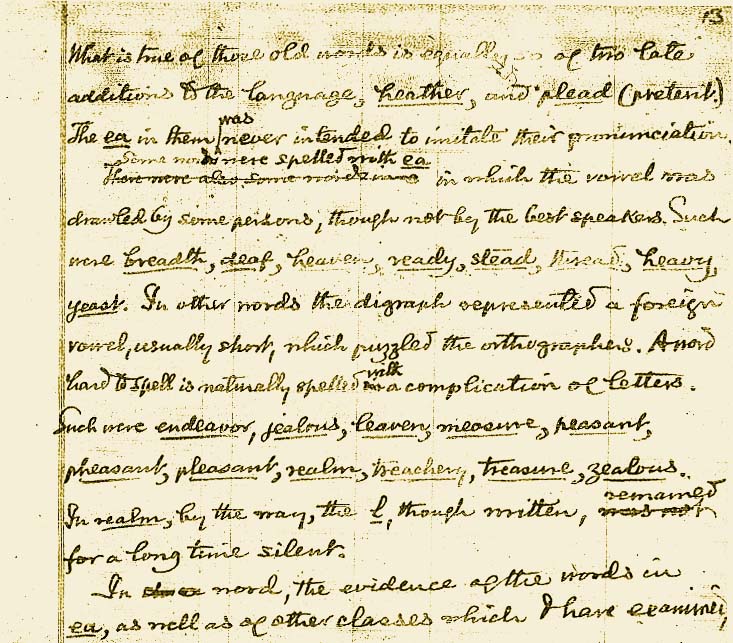 13
What is true of those old words is equally so of two late
additions to the language, heather, and plead (preterit.)
was
The ea in them never intended to imitate their pronunciation.
Some words were spelled with ea
There were also some words in which the vowel was
drawled by some persons, though not by the best speakers. Such
were breadth, deaf, heaven, ready, stead, thread, heavy,
yeast. In other words the digraph represented a foreign
vowel, usually short, which puzzled the orthographers. A word
with
hard to spell is naturally spelled a complication of letters.
Such were endeavor, jealous, leaven, measure, peasant,
pheasant, pleasant, realm, treachery, treasure, zealous.
remained
In realm, by the way, the l, though written, was not
for a long time silent.
In word, the evidence of the words in
ea, as well as of other classes which I have examined,